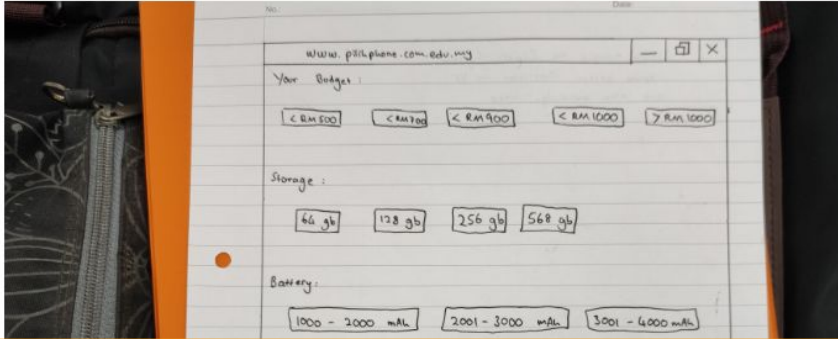 No.
Date:
www. pilihphone.com.edu.my
Your Budget :
< RM500 < RM700 < RM900 < RM1000 > RM1000
Storage :
64 gb 128 gb 256 gb 568 gb
Battery:
1000 - 2000 mAh 2001 - 3000 mAh 3001 - 4000 mAh